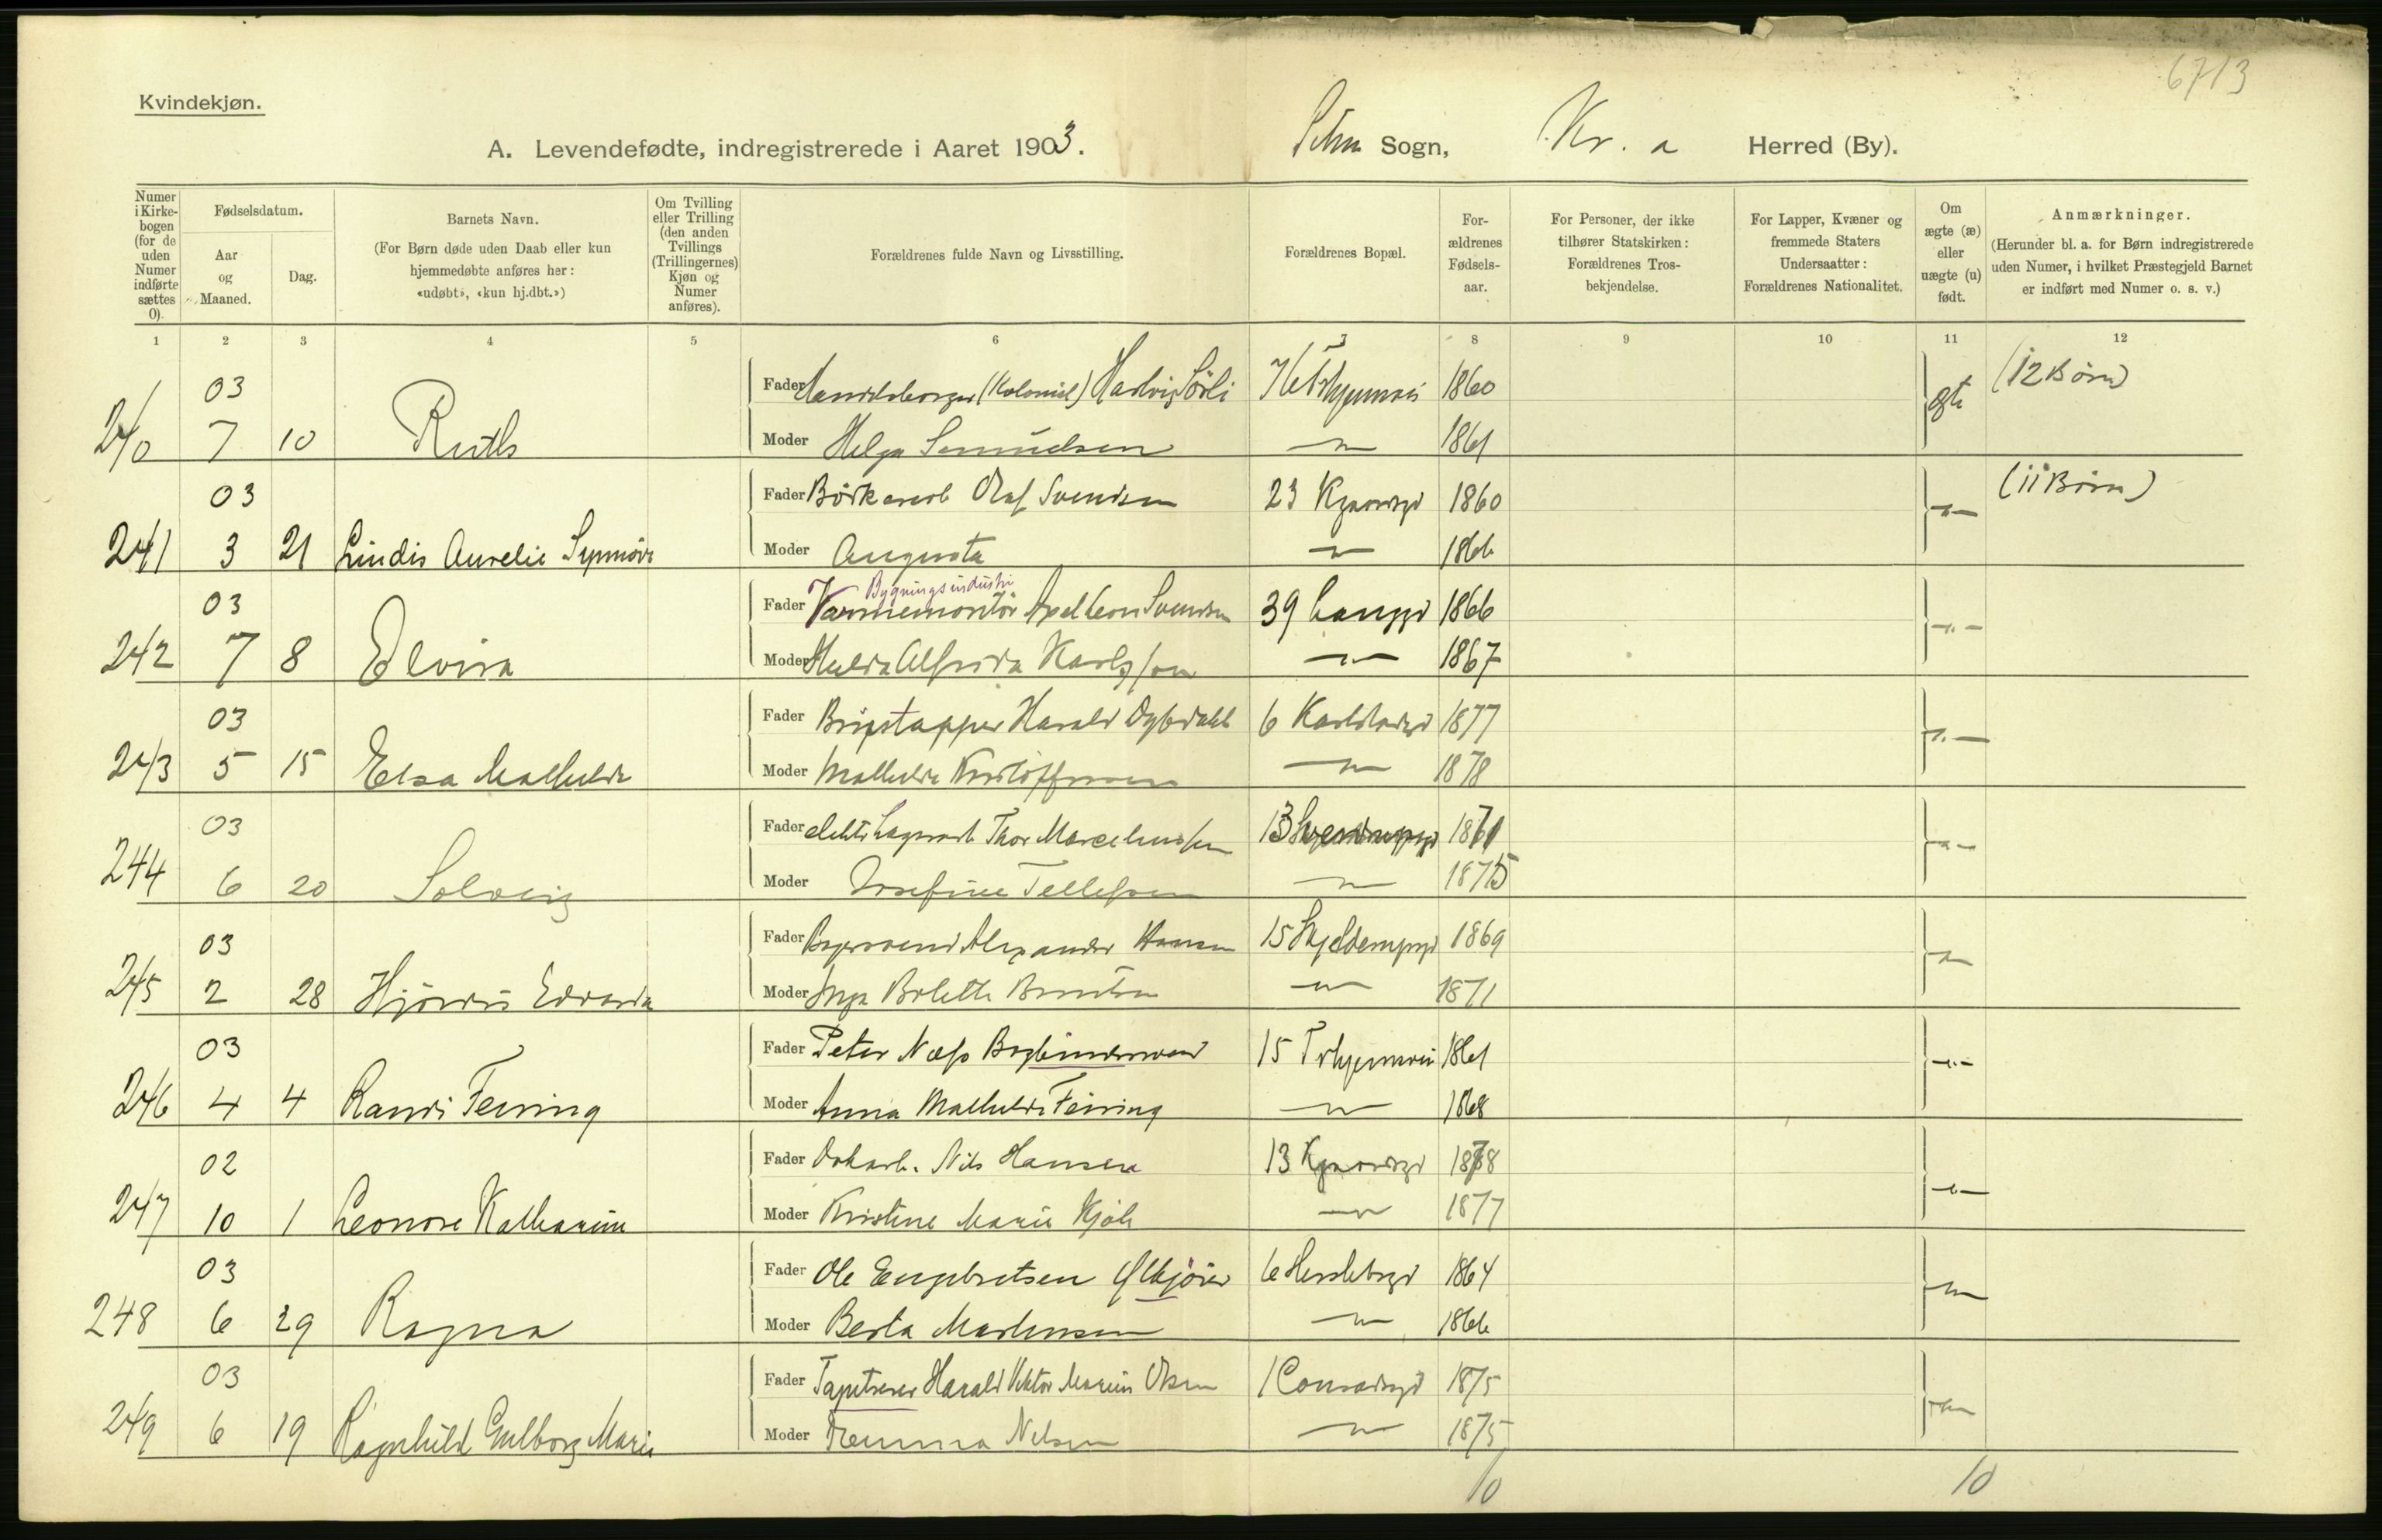 6713
Kvindekjøn.
A. Levendefødte, indregistrerede i Aaret 1903. Sogn, Kr.a Herred (By).
Numer i Kirke-bogen (for de uden Numer indførte sættes 0).
Fødselsdatum.
Aar og Maaned.
Dag.
Barnets Navn.
(For Børn døde uden Daab eller kun hjemmedøbte anføres her: «udøbt», «kun hj.dbt.»)
Om Tvilling eller Trilling (den anden Tvillings (Trillingernes) Kjøn og Numer anføres).
Forældrenes fulde Navn og Livsstilling.
Forældrenes Bopæl.
For-ældrenes Fødsels-aar.
For Personer, der ikke tilhører Statskirken: Forældrenes Tros-bekjendelse.
For Lapper, Kvæner og fremmede Staters Undersaatter: Forældrenes Nationalitet.
Om ægte (æ) eller uægte (u) født.
Anmærkninger.
(Herunder bl. a. for Børn indregistrerede uden Numer, i hvilket Præstegjeld Barnet er indført med Numer o. s. v.)
1 2 3 4 5 6 7 8 9 10 11 12
03 Fader (Kolonial) Hartvig Sörli 1860 (12 Börn)
240 7 10 Ruth Moder Helga Samuelsen 1861
03 Fader Olaf Svendsen 23 1860 (11 Börn)
241 3 21 Lindis Aurelie Synnöve Moder Augusta 1866
Bygningsindustri
03 Fader Varmemontör Axel Leon Svendsen 39 Langgd 1866
242 7 8 Elvira Moder Hulda Alfrida Karlsson 1867
03 Fader Harald 6 Karlstadgd 1877
243 5 15 Elsa Mathilde Moder Mathilde Kristoffersen 1878
03 Fader Thor Marceliussen 13 1871
244 6 20 Solveig Moder Josefine Tellefsen 1875
03 Fader Alexander Hansen 15 1869
245 2 28 Hjördis Edvarda Moder Inga Bolette 1871
03 Fader Peter Næss Bogbindersvend 15 1861
246 4 4 Randi Feiring Moder Anna Mathilde Feiring 1868
02 Fader Nils Hansen 13 1878
247 10 1 Leonore Katharine Moder Kristine Marie 1877
03 Fader Ole Engebretsen Ølkjörer 6 Herslebsgd 1864
248 6 29 Ragna Moder Berta Martinsen 1866
03 Fader Tapetserer Harald Viktor Marius Olsen 1 Conradsgd 1875
249 6 19 Ragnhild Gulborg Marie Moder Nelsen 1875
10 10